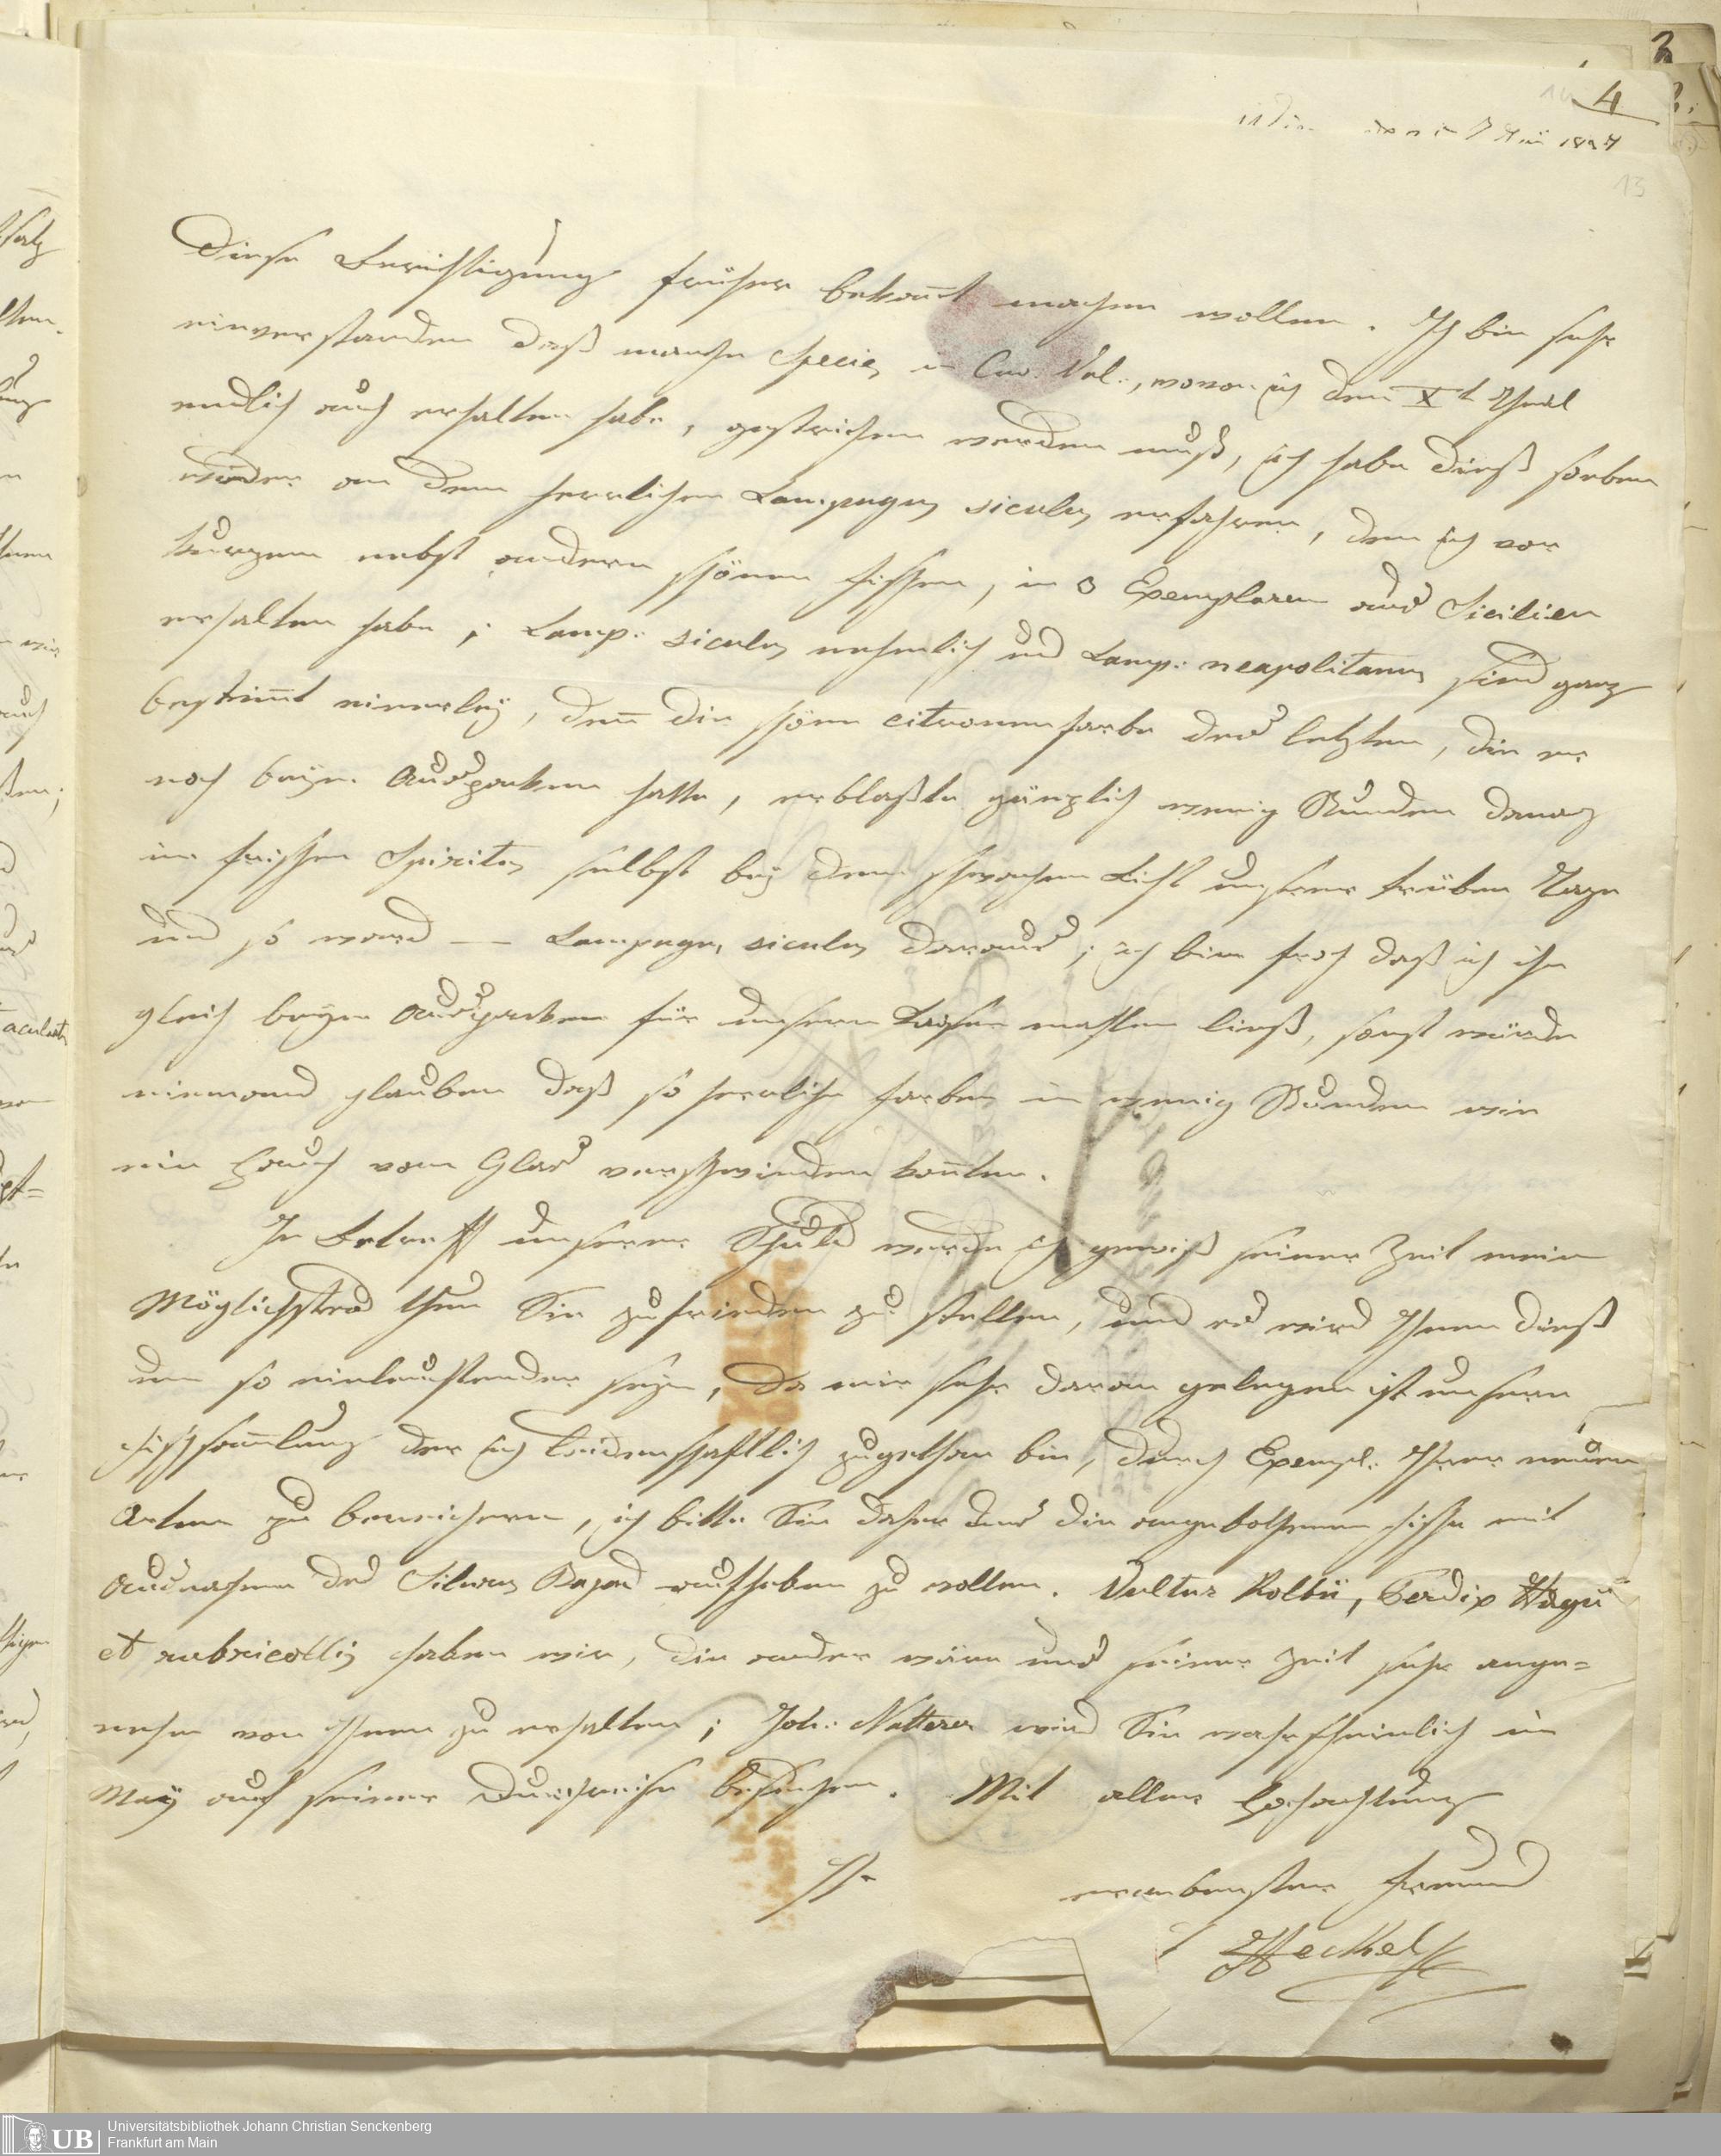 3
4
13
Diese Berichtigung früher bekan̄t machen wollen. Ich bin sehr
einverstanden daß manche Species in Cuv. Val., wovon ich den Xt Theil
endlich auch erhalten habe, gestrichen werden muß, ich habe dieß soeben
wieder an dem herrlichen Lampugus siculus erfahren, den ich vor
kurzem nebst andern schönen Fischen, in 3 Exemplaren aus Sicilien
erhalten habe; Lamp: siculus nehmlich und Lamp: neapolitanus sind ganz
bestim̄t einerley, den̄ die schöne citronenfarbe des letzten, die er
noch beym Auspacken hatte, erblaßte gänzlich wenig Stunden darauf
im frischen Spiritus selbst bey dem schwachen Licht unserer trüben Tage
und so ward — Lampugus siculus daraus; ich bin froh daß ich ihn
gleich beym Auspacken für unsern Kaiser mahlen ließ, sonst würde
niemand glauben daß so herrliche Farben in wenig Stunden wie
ein Hauch vom Glas verschwinden kon̄ten.
In Betreff unserer Schuld werde ich gewiß seiner Zeit mein
Möglichstes thun Sie zufrieden zu stellen, und es wird Ihnen dieß
um so einleuchtender seyn, da mir sehr daran gelegen ist unsere
Fischsam̄lung der ich leidenschaftlich zugethan bin, durch Exempl: Ihrer neuen
Arten zu bereichern, ich bitte Sie daher uns die angebothenen Fische mit
Ausnahme des Silurus Bajad aufheben zu wollen. Vultur Kolbii, Perdix Hayii
et rubricollis haben wir, die andern wären uns seiner Zeit sehr ange=
nehm von Ihnen zu erhalten; Joh: Natterer wird Sie wahrscheinlich im
May auf seiner Durchreise besuchen. Mit aller Hochachtung
Ihr
ergebenster Freund
J Heckel
UB
Universitätsbibliothek Johann Christian Senckenberg
Frankfurt am Main